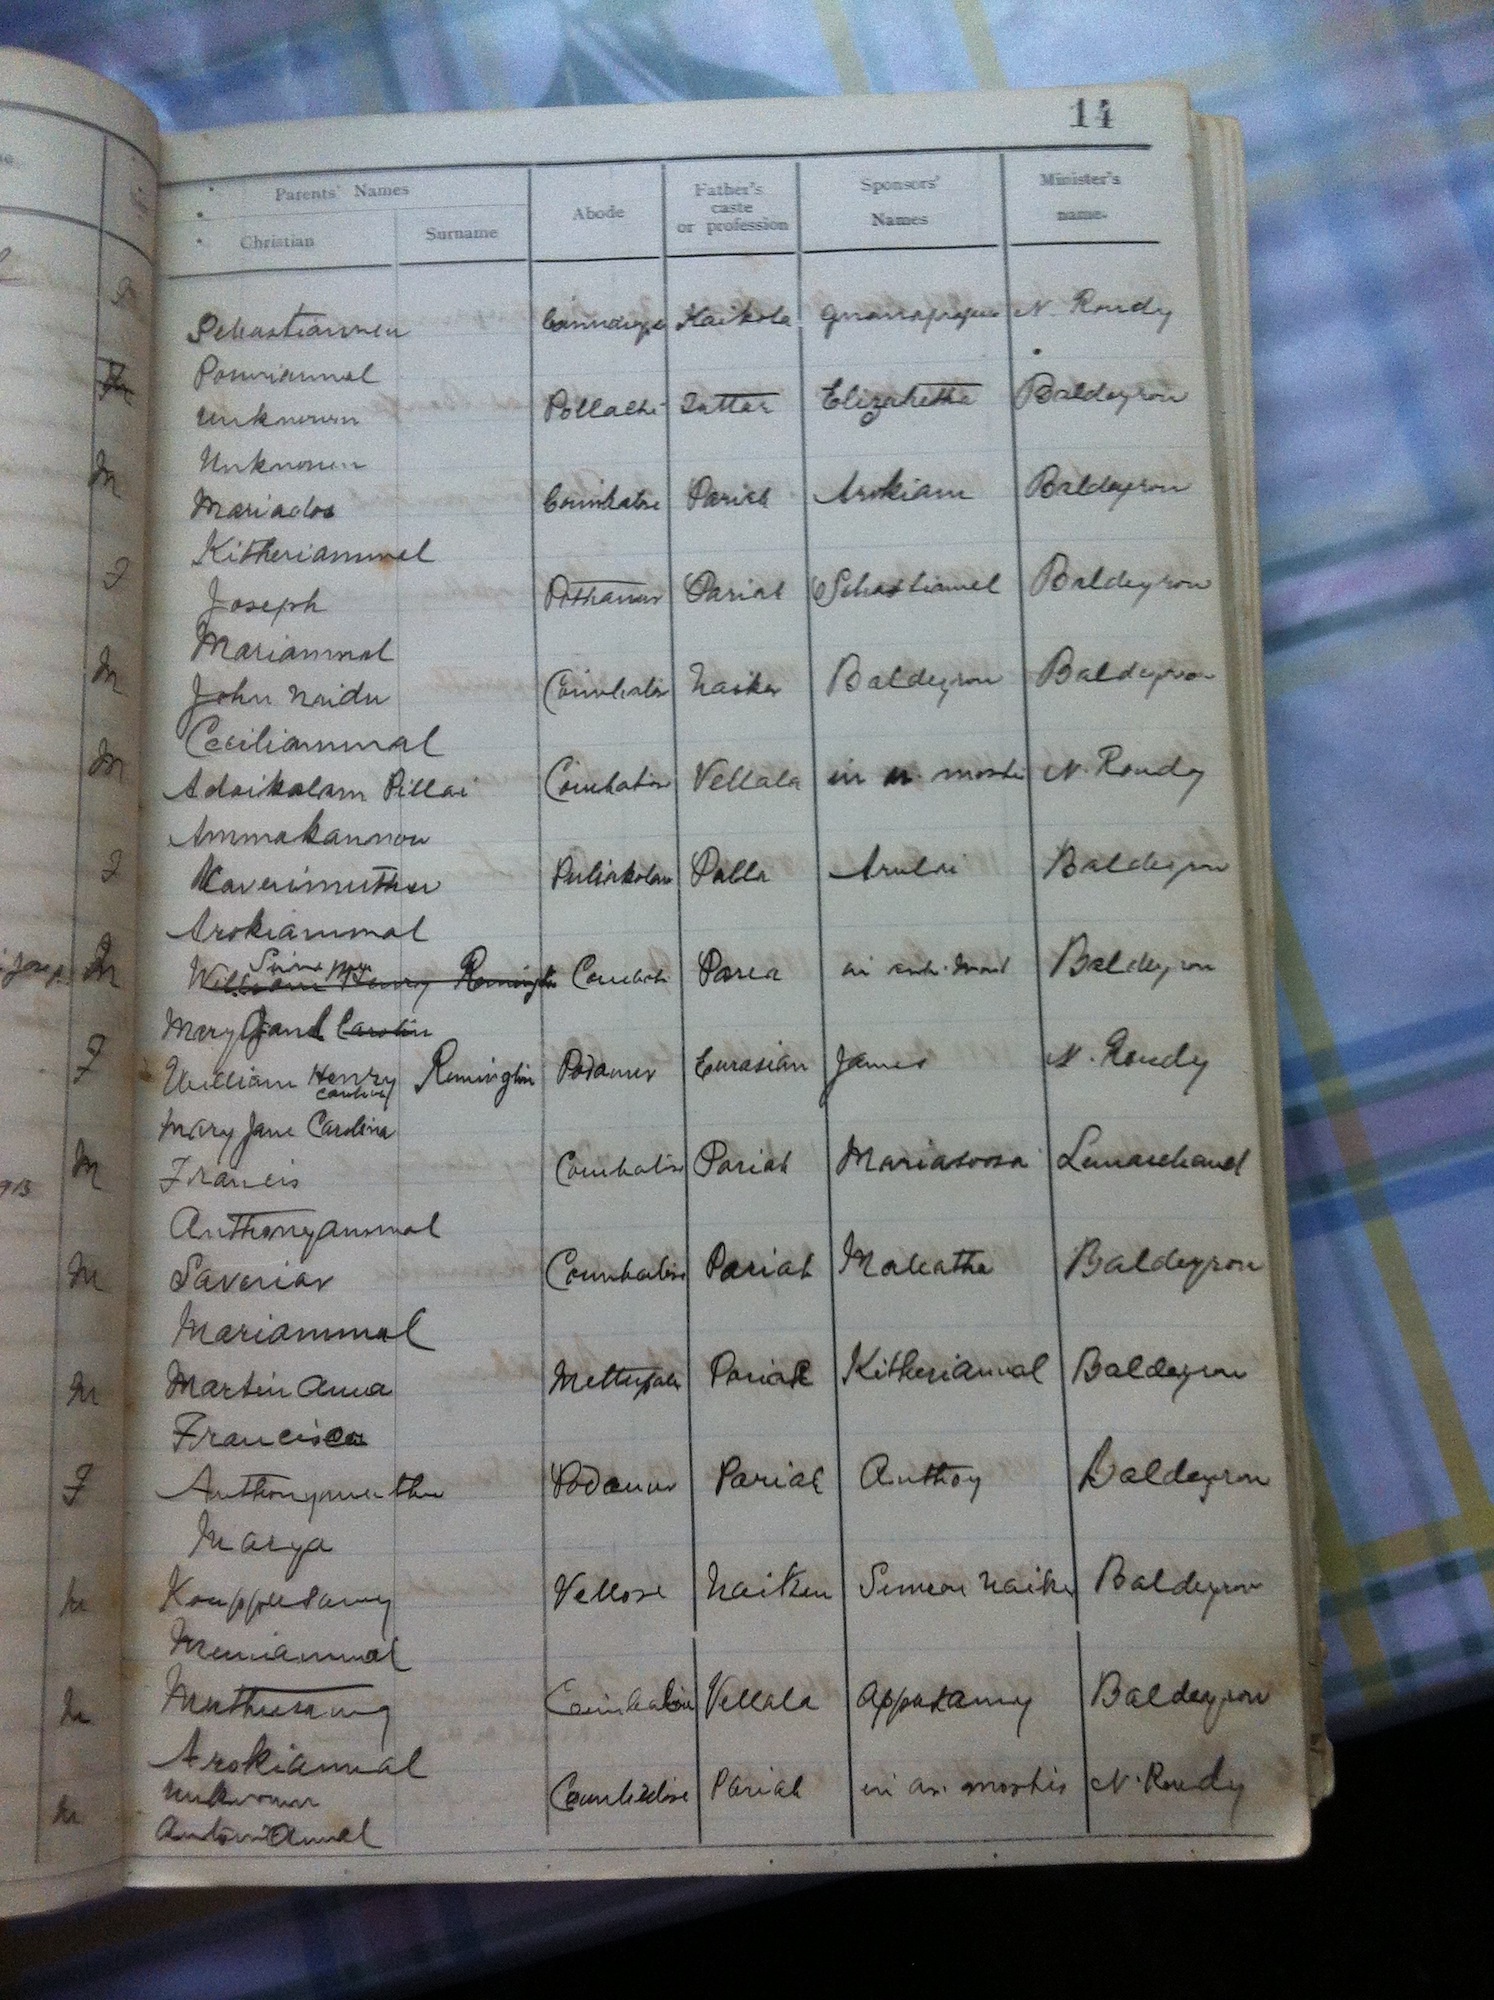 14
Parents' Names
Christian Surname Abode Father's caste or profession Sponsors' Names Minister's name.
Sebastianmen Kaikola N. Roudy
Ponniammal
unknown Pollachi Elizabetha Baldeyron
Unknown
Mariados Coimbatore Pariah Arokiam Baldeyron
Kitheriammal
Joseph Pothanur Pariah Sebastiamel Baldeyron
Mariammal
John Naidu Coimbatore Naiker Baldeyron Baldeyron
Ceciliammal
Adaikalam Pillai Coimbatore Vellala in m. mortis N. Roudy
Ammakannou
Xaverimuthu Palla Arulai Baldeyron
Arokiammal
William Henry Remington Parea Baldeyron
Mary Jane Carolin
William Henry Remington Podanur Eurasian James N. Roudy
Mary Jane Carolina
M Francis Coimbatore Pariah Mariasoosa Lemarchand
Anthonyammal
M Saveriar Coimbatore Pariah Makatha Baldeyron
Mariammal
M Martin Mettupala Pariah Kitheriammal Baldeyron
Francisca
F Anthonymuthu Podanur Pariah Anthoy Baldeyron
Marya
M Kouppusamy Vellore Naiken Simeon Naiker Baldeyron
M Muthusamy Coimbatore Vellala Appusamy Baldeyron
Arokiammal
M Unknown Coimbatore Pariah in ar. mortis N. Roudy